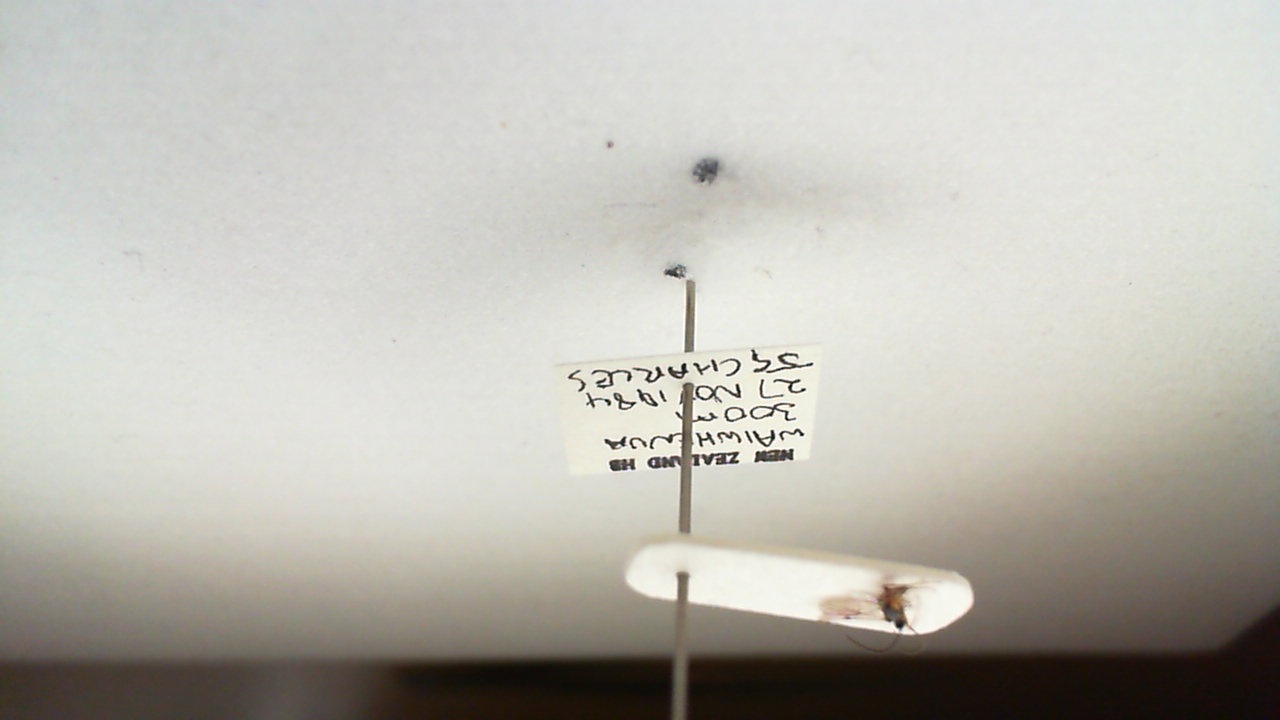 NEW ZEALAND HB
WAIWHENUA
300m
27 NOV 1984
JG CHARLES